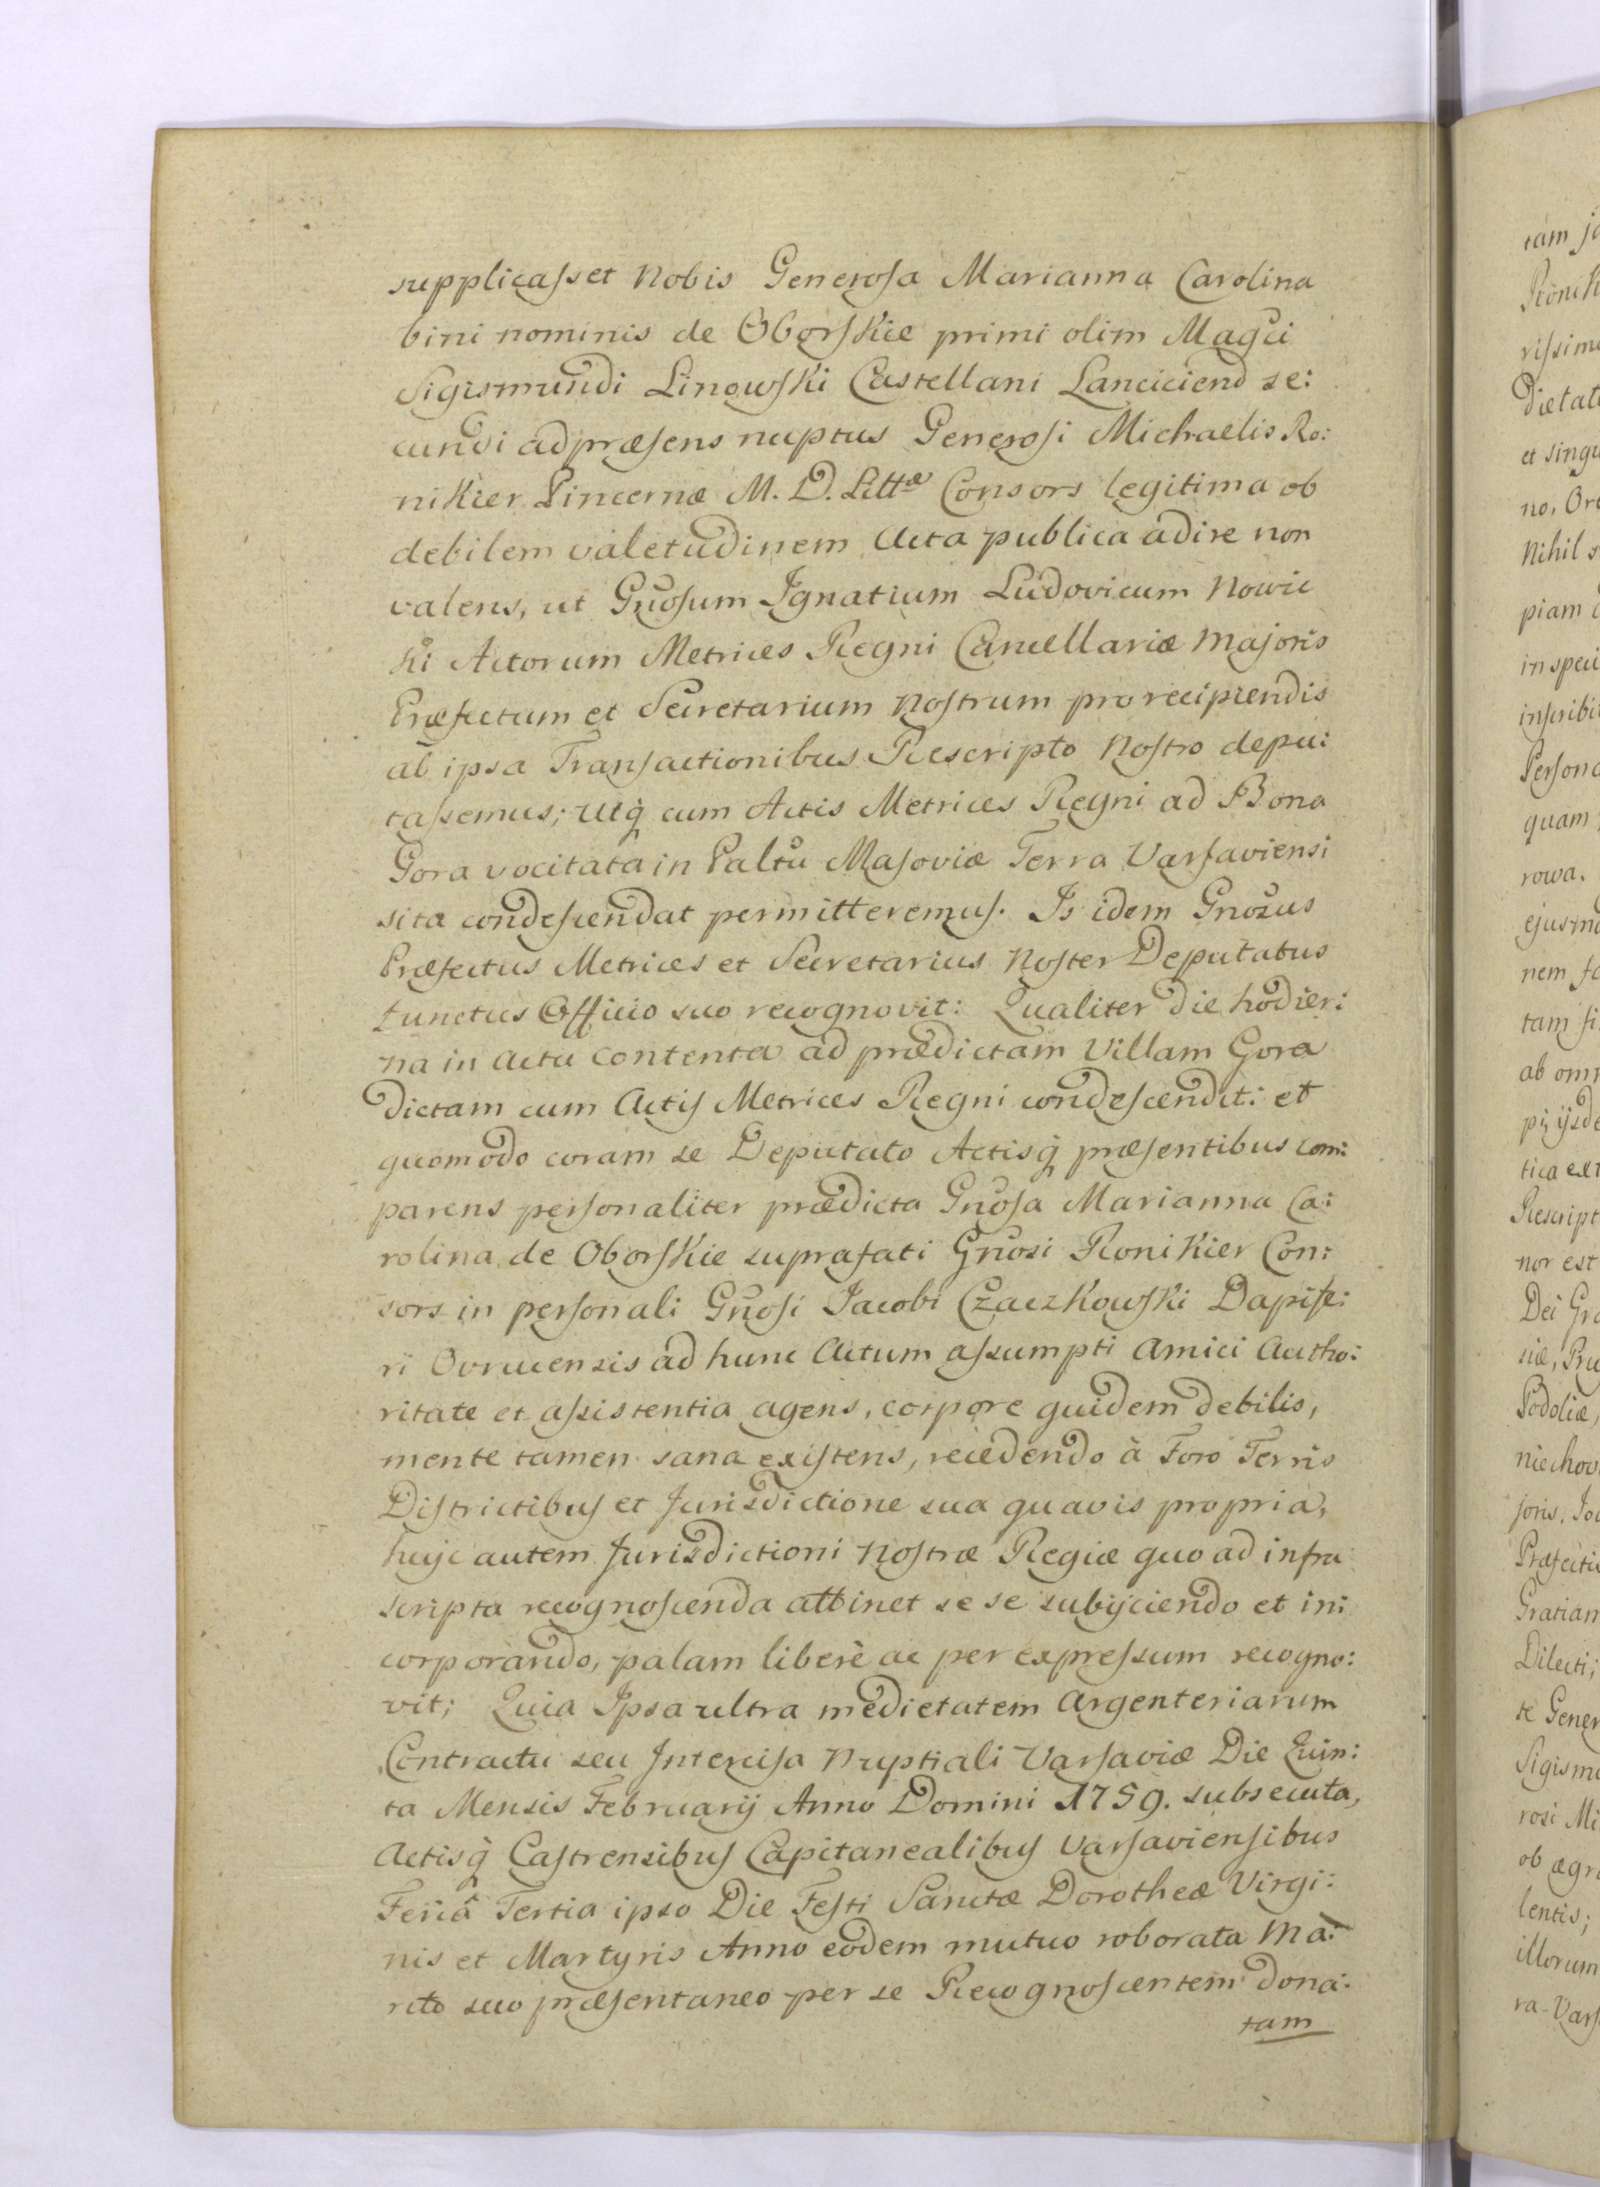 supplicasset Nobis Generosa Marianna Carolina
bini nominis de Oborskie primi olim Magci
Sigismundi Linowski Castellani Lanciciens se:
cundi ad præsens nuptus Generosi Michaelis Ro:
nikier Pincernæ M. D. Littæ Consors legitima ob
debilem valetudinem Acta publica adire non
valens, ut Gnosum Ignatium Ludovicum Nowic
ki Actorum Metrices Regni Cancellariæ Majoris
Præfectum et Secretarium Nostrum pro recipiendis
ab ipsa Transactionibus Rescripto Nostro depu:
tassemus; Utq cum Actis Metrices Regni ad Bona
Gora vocitata in Paltu Masoviæ Terra Varsaviensi
sita condescendat permitteremus. Is idem Gnosus
Præfectus Metrices et Secretarius Noster Deputatus
functus Officio suo recognovit: Qualiter Die hodier:
na in Actu contenta ad prædictam Villam Gora
dictam cum Actis Metrices Regni condescendit: et
quomodo coram se Deputato Actisq præsentibus com:
parens personaliter prædicta Gnosa Marianna Ca:
rolina de Oborskie suprafati Gnosi Ronikier Con:
sors in personali Gnosi Jacobi Czaczkowski Dapife:
ri Ovrucensis ad hunc Actum assumpti Amici Autho:
ritate et assistentia agens, corpore quidem debilis,
mente tamen sana existens, recedendo à Foro Terris
Districtibus et Jurisdictione sua quavis propria,
huic autem Jurisdictioni Nostræ Regiæ quo ad infra
scripta recognoscenda attinet se se subijciendo et in:
corporando, palam liberè ac per expressum recogno:
vit; Quia Ipsa ultra medietatem Argenteriarum
Contractu seu Intercisa Nuptiali Varsaviæ Die Quin:
ta Mensis Februarij Anno Domini 1759. subsecuta,
Actisq Castrensibus Capitanealibus Varsaviensibus
Feriâ Tertia ipso Die Festi Sanctæ Dorotheæ Virgi:
nis et Martyris Anno eodem mutuo roborata Ma:
rito suo præsentaneo per se Recognoscentem dona:
tam